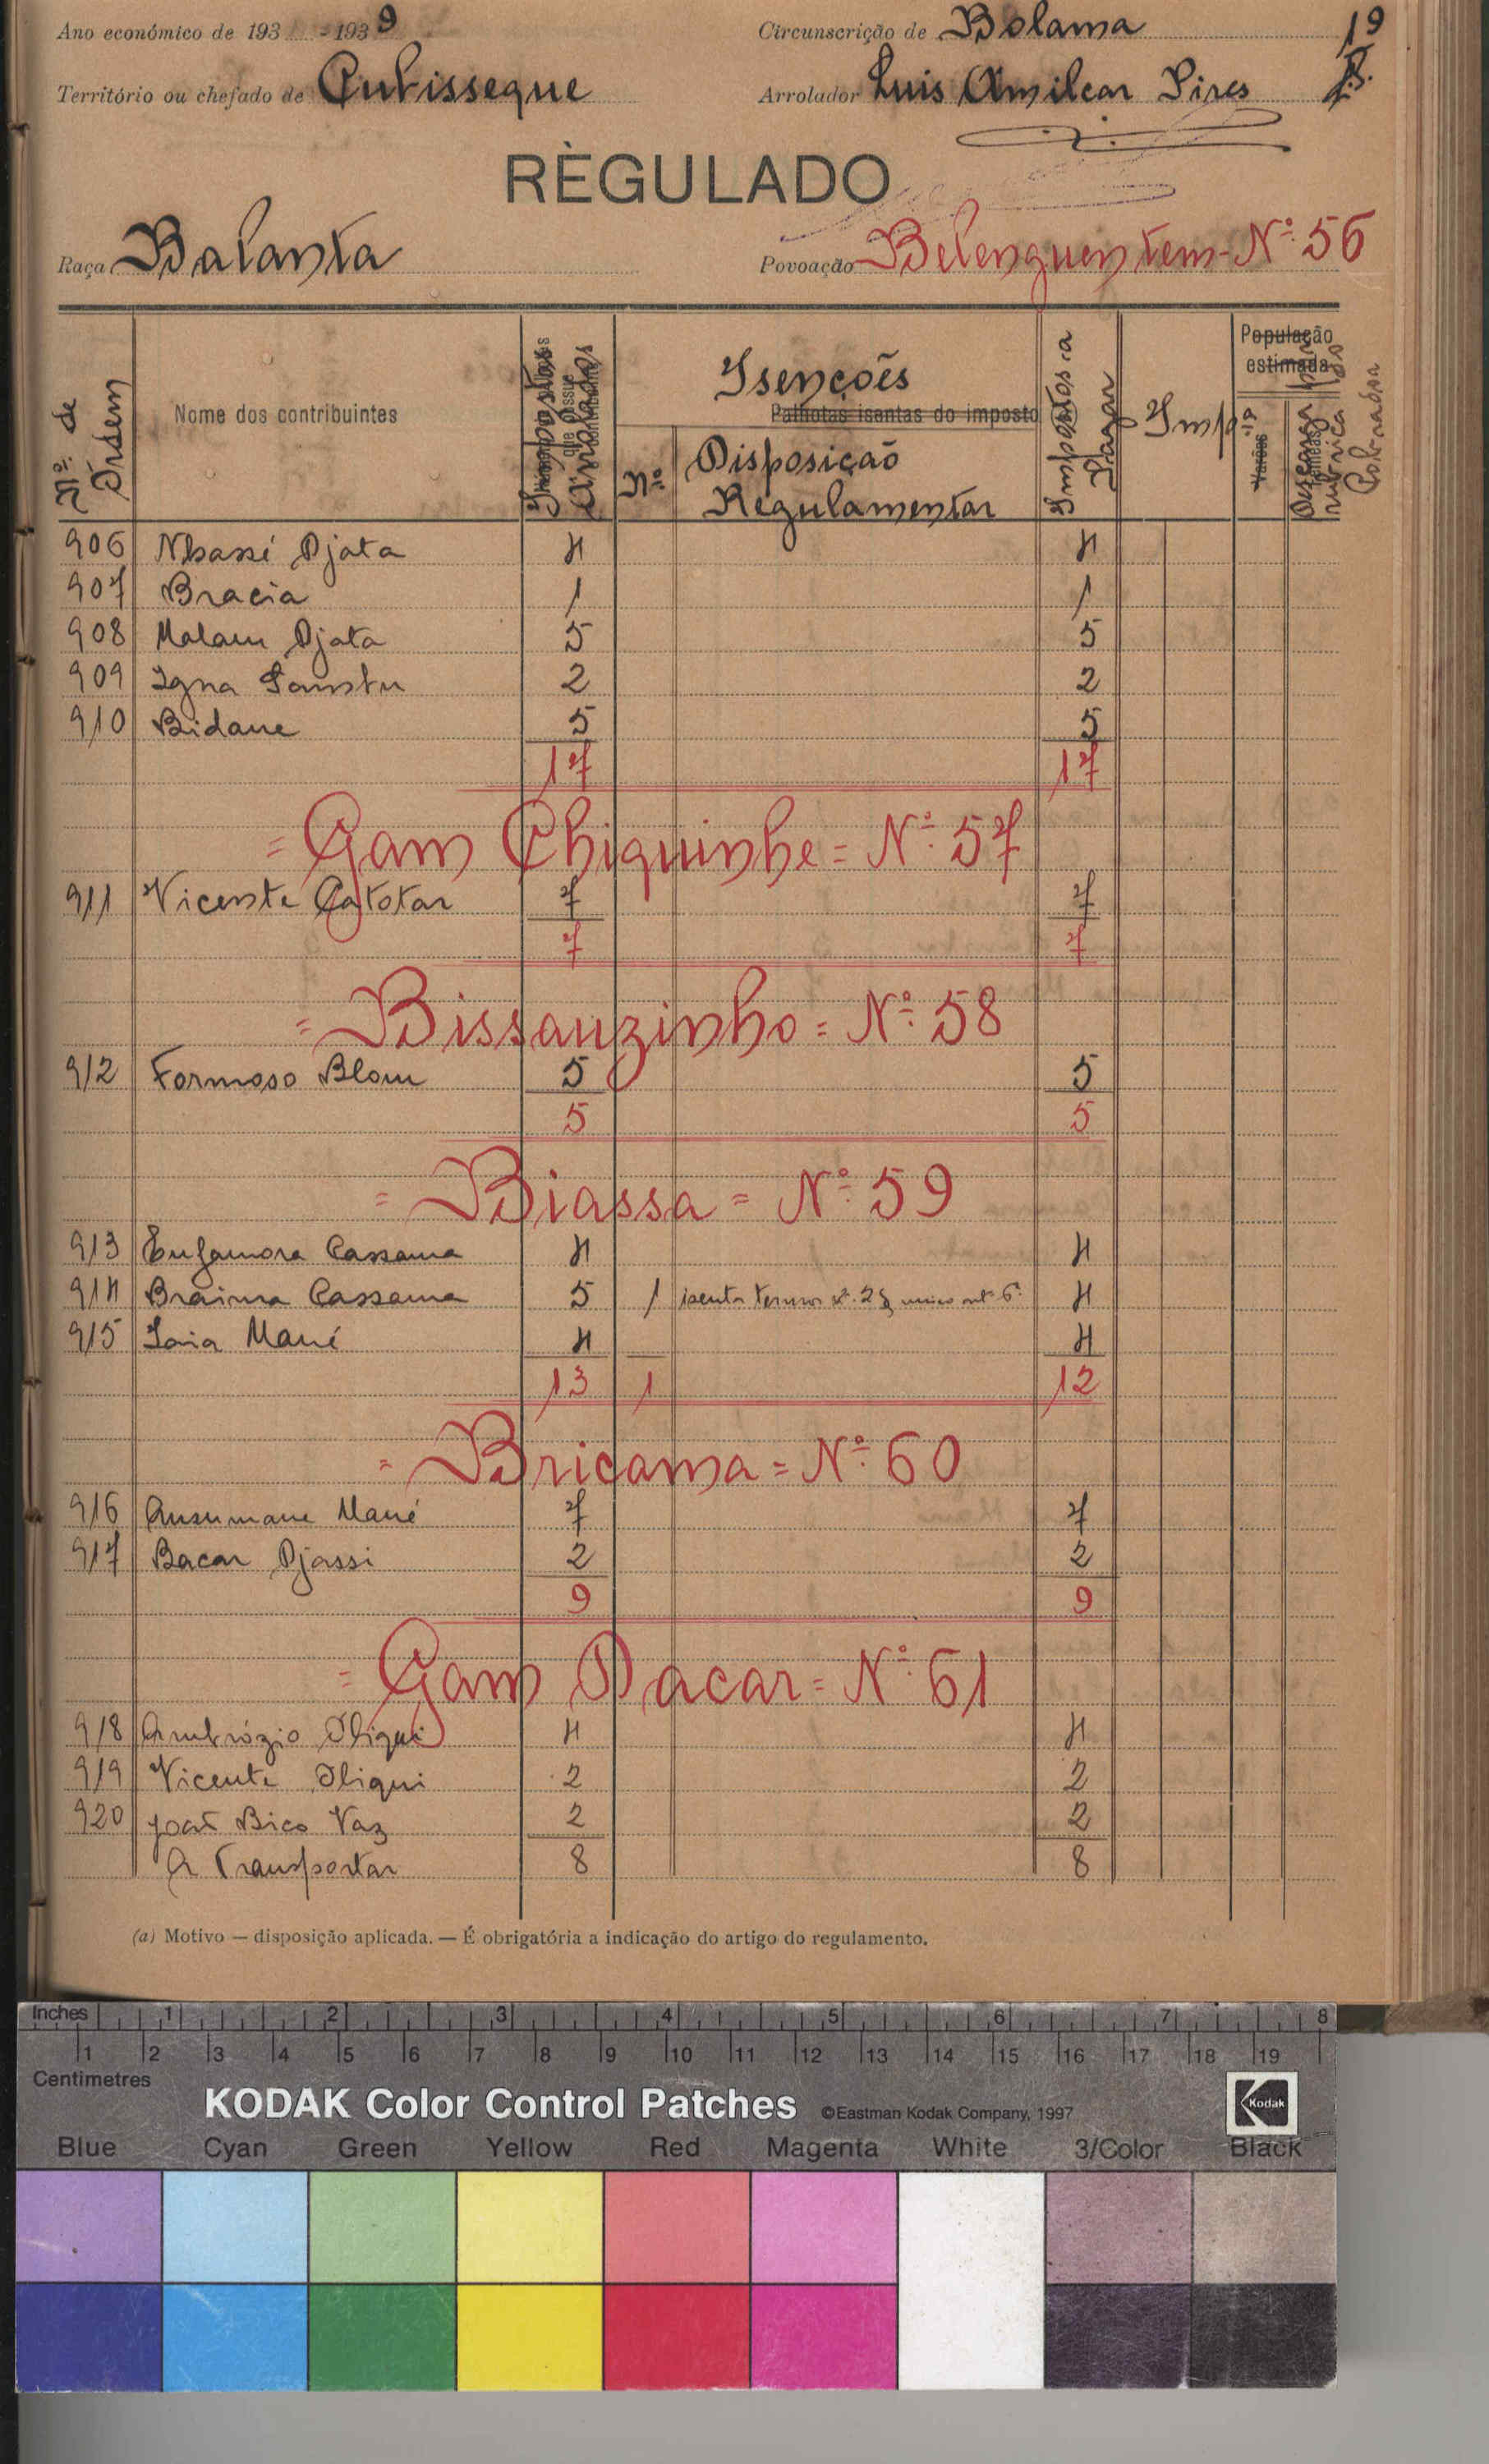 Ano económico de 193 -1939
Circunscrição de Bolama
19
Território ou chefado de Cubisseque
Arrolador Luis Amilcar Pires
RÈGULADO
Raça Balanta
Povoação Belenguentem - Nº 56
Nº de Ordem
Nome dos contribuintes
Impostos Arrolados
Isenções
Palhotas isentas do imposto
Nº
Disposição Regulamentar
Impostos a Pagar
População estimada
Varões
rubrica do Cobrador
906 Nbassé Djata 4 4
907 Bracia 1 1
908 Malam Djata 5 5
909 Igna 2 2
910 Bidane 5 5
17 17
= Gam Chiquinhe = Nº 57
911 Vicente Catotar 7 7
7 7
= Bissauzinho = Nº 58
912 Formoso Blom 5 5
5 5
= Biassa = Nº 59
913 Eufamora Cassama 4 4
914 Braima Cassama 5 1 isento termos nº 2 § unico artº 6º 4
915 Mané 4 4
13 1 12
= Bricama = Nº 60
916 Ansumane Mané 7 7
917 Bacar Djassi 2 2
9 9
= Gam Dacar = Nº 61
918 Ambrózio 4 4
919 Vicente 2 2
920 João Bico Vaz 2 2
A Transportar 8 8
(a) Motivo — disposição aplicada. — É obrigatória a indicação do artigo do regulamento.
Inches 1 2 3 4 5 6 7 8
1 2 3 4 5 6 7 8 9 10 11 12 13 14 15 16 17 18 19
Centimetres
KODAK Color Control Patches ©Eastman Kodak Company, 1997 Kodak
Blue Cyan Green Yellow Red Magenta White 3/Color Black